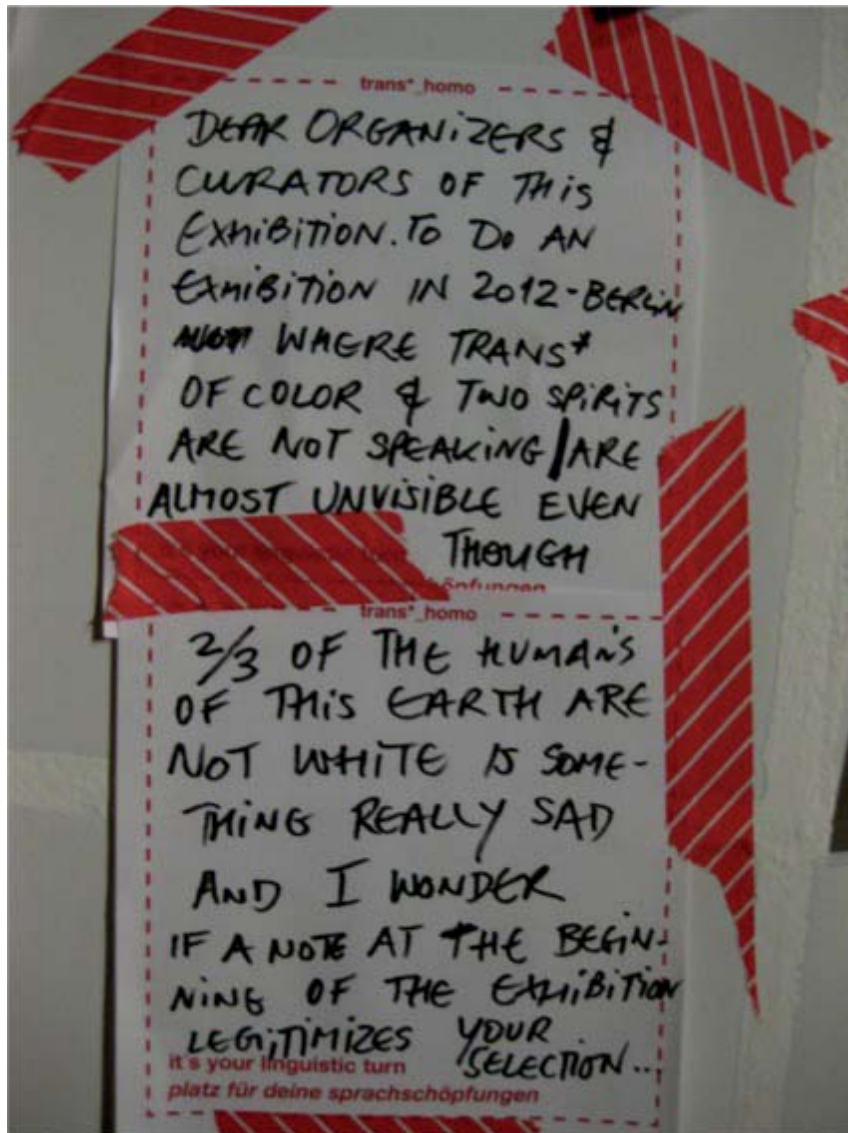 trans*_homo
DEAR ORGANIZERS &
CURATORS OF THIS
EXHIBITION. TO DO AN
EXHIBITION IN 2012-BERLIN
WHERE TRANS*
OF COLOR & TWO SPIRITS
ARE NOT SPEAKING / ARE
ALMOST UNVISIBLE EVEN
THOUGH
it's your linguistic turn
schöpfungen
trans*_homo
2/3 OF THE HUMANS
OF THIS EARTH ARE
NOT WHITE IS SOME-
THING REALLY SAD
AND I WONDER
IF A NOTE AT THE BEGIN-
NING OF THE EXHIBITION
LEGITIMIZES YOUR
SELECTION...
it's your linguistic turn
platz für deine sprachschöpfungen